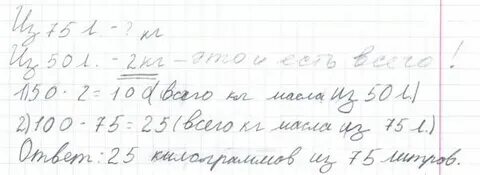 Из 75 л. - ? кг
Из 50 л. - 2 кг - это и есть всего!
1) 50 · 2 = 100 (всего кг масла из 50 л.)
2) 100 - 75 = 25 (всего кг масла из 75 л.)
Ответ: 25 килограммов из 75 литров.